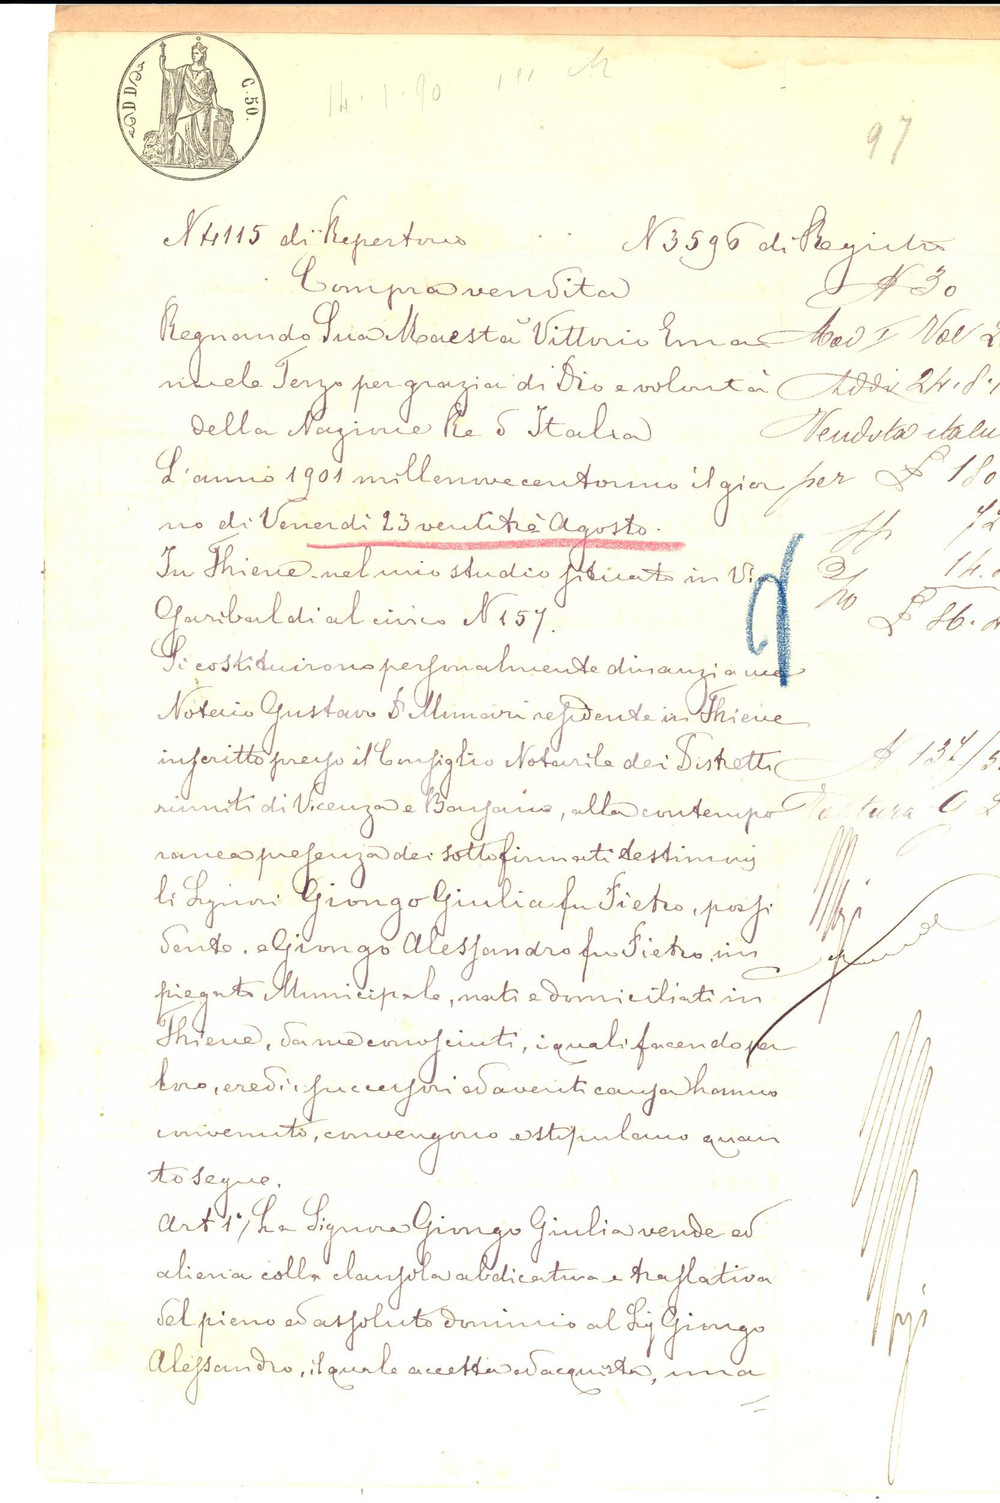 C. 50.
14 · 1 · 90
97
N 4115 di Repertorio
N 3596 di Registro
Compravendita
N 30
Regnando Sua Maestà Vittorio Ema
Mod I Vol 2
nuele Terzo per grazia di Dio e volontà
Addi 24.8.
della Nazione Re d'Italia
Venduta
L'anno 1901 millenovecentouno il gior
per £ 180
no di Venerdì 23 ventitrè Agosto.
72
In Thiene nel mio studio situato in Via
14.
Garibaldi al civico N 157.
£ 86.
Si costituirono personalmente dinanzi a me
Notaio Gustavo Dr Munari residente in Thiene
inscritto presso il Consiglio Notarile dei Distretti
N 137/
riuniti di Vicenza e Bassano, alla contempo
Voltura
ranea presenza dei sottofirmati testimonj
li Signori Giongo Giulia fu Pietro, possi
dente. e Giongo Alessandro fu Pietro, im
piegato Municipale, nati e domiciliati in
Thiene, da me conosciuti, i quali facendo per
loro, eredi, successori ed aventi causa hanno
convenuto, convengono e stipulano quan
to segue.
Art 1°, La Signora Giongo Giulia vende ed
aliena colla clausola abdicativa e traslativa
del pieno ed assoluto dominio al Sig Giongo
Alessandro, il quale accetta ed acquista, una